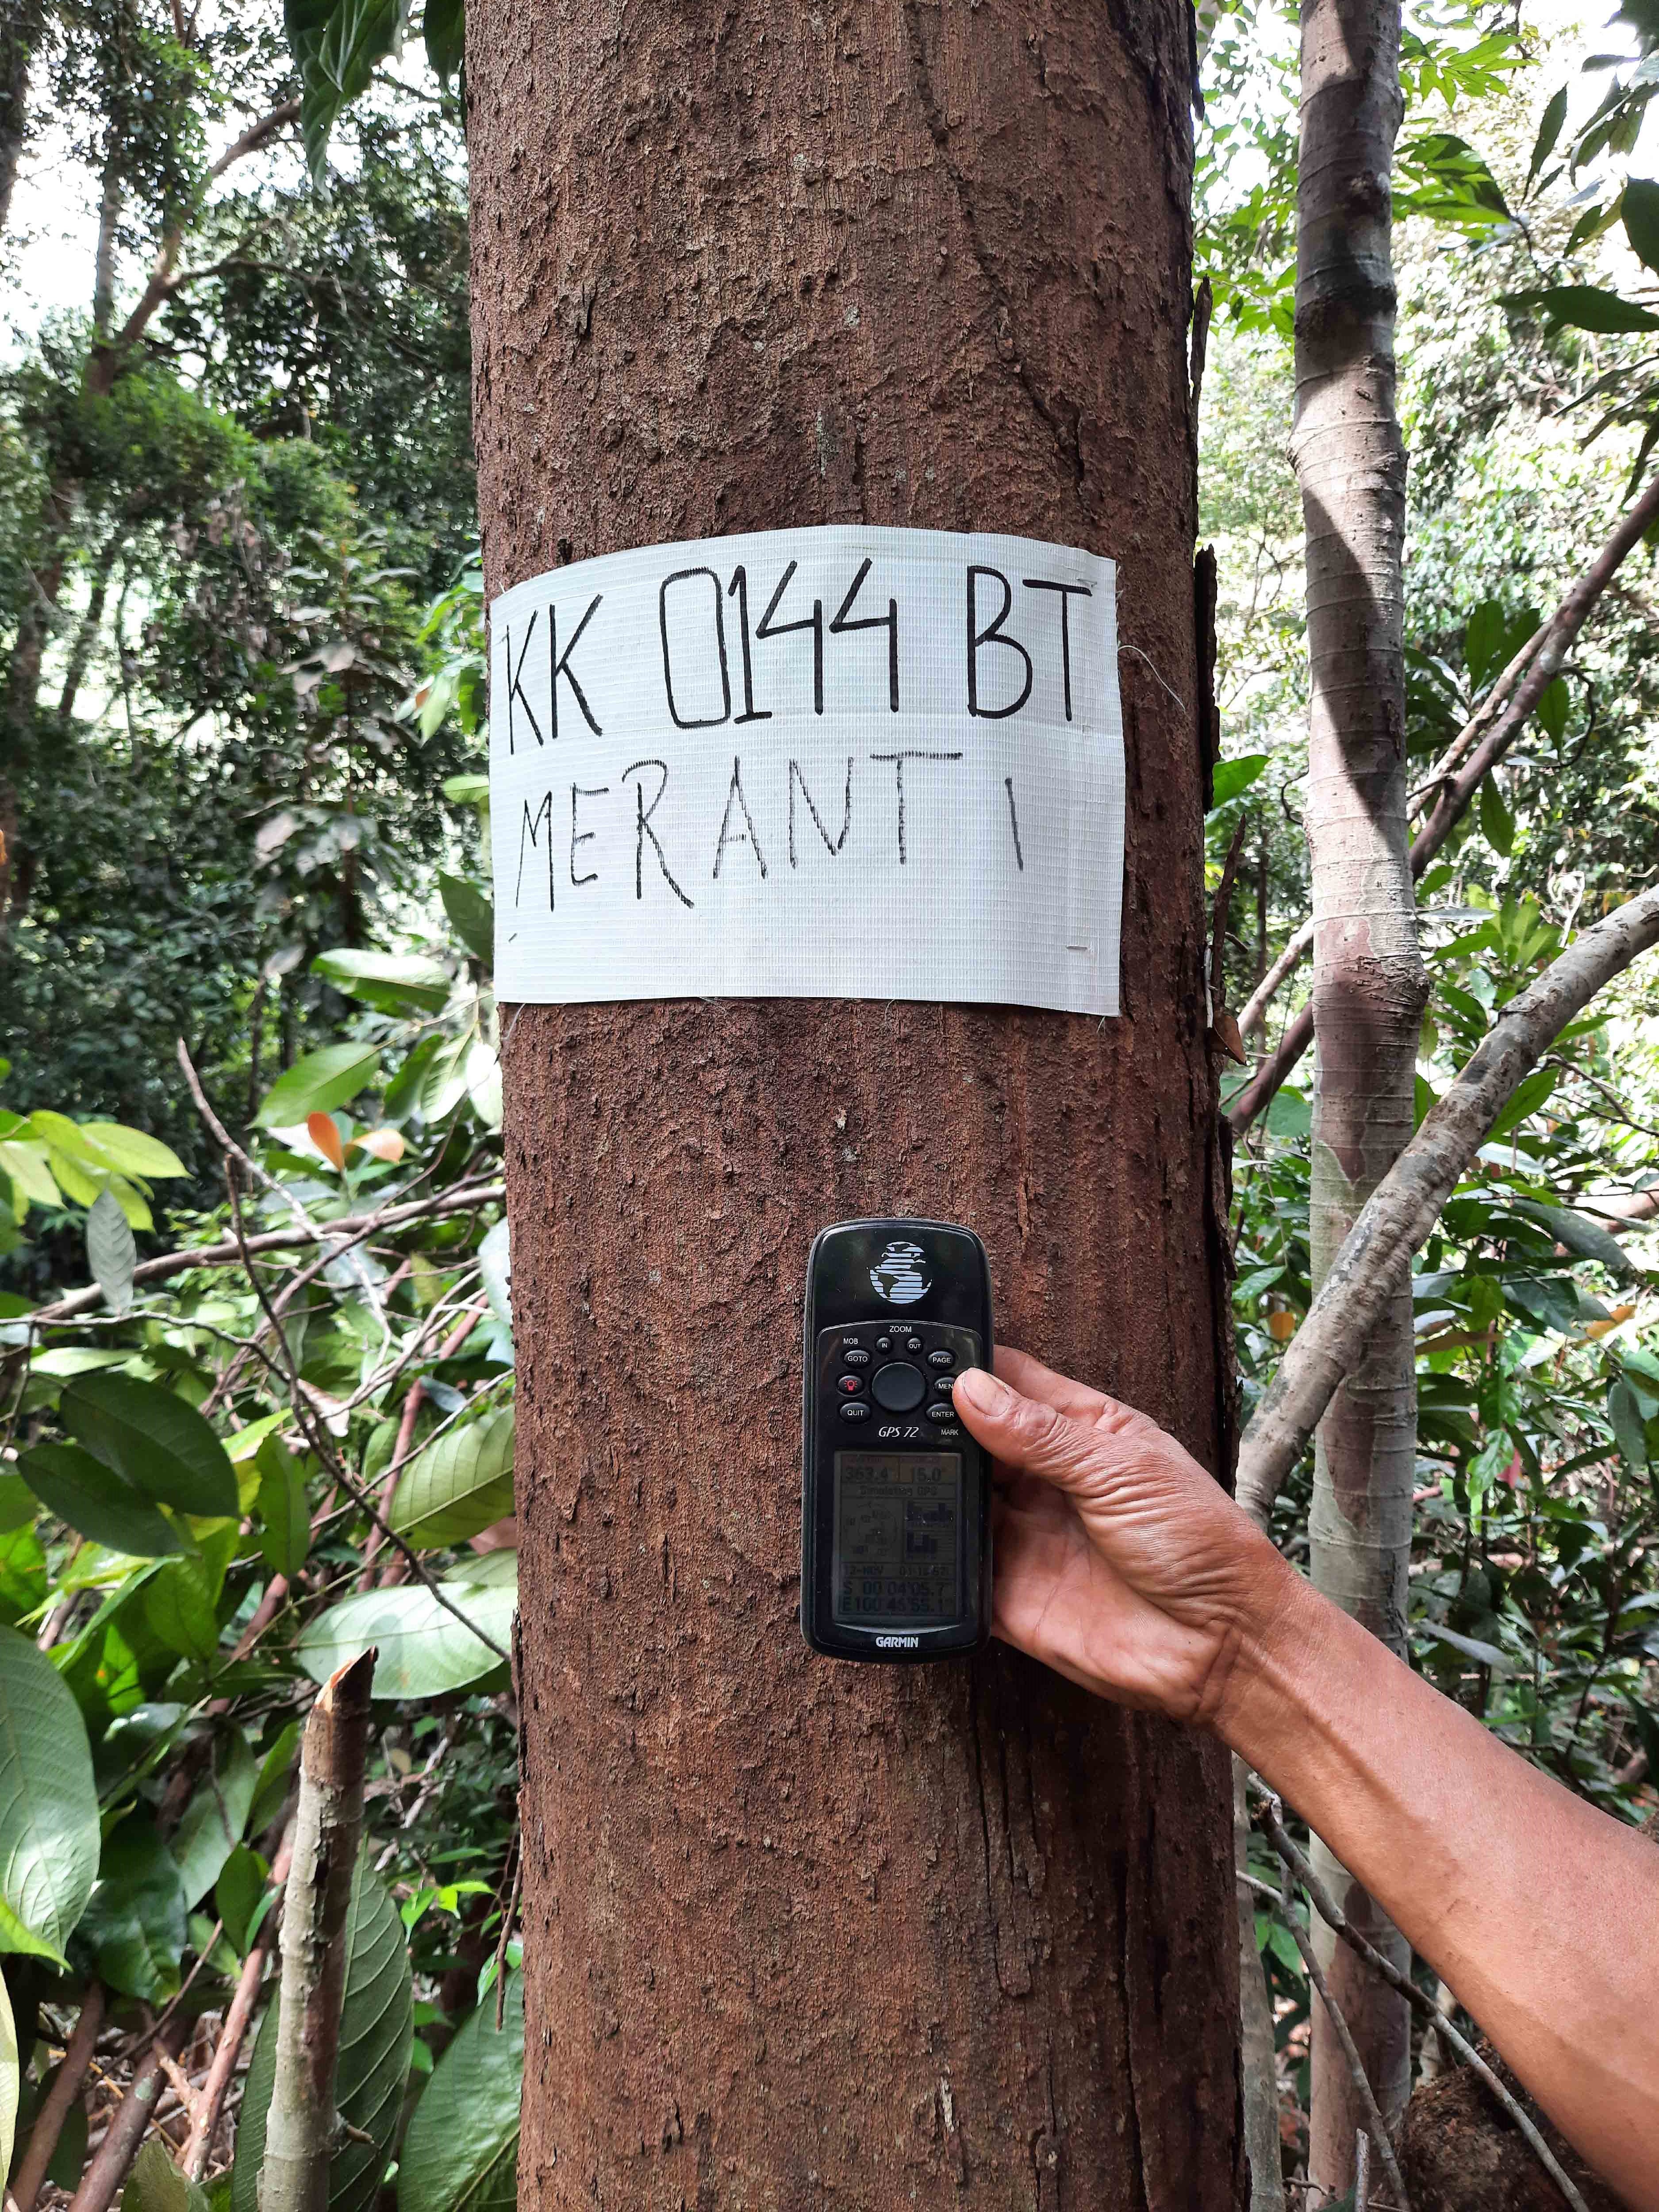 KK 0144 BT
MERANTI
ZOOM
MOB
IN
OUT
GOTO
PAGE
QUIT
ENTER
GPS 72
MARK
353.4 15.0°
Simulating GPS
12-NOV
S 00°04'05.7"
GARMIN